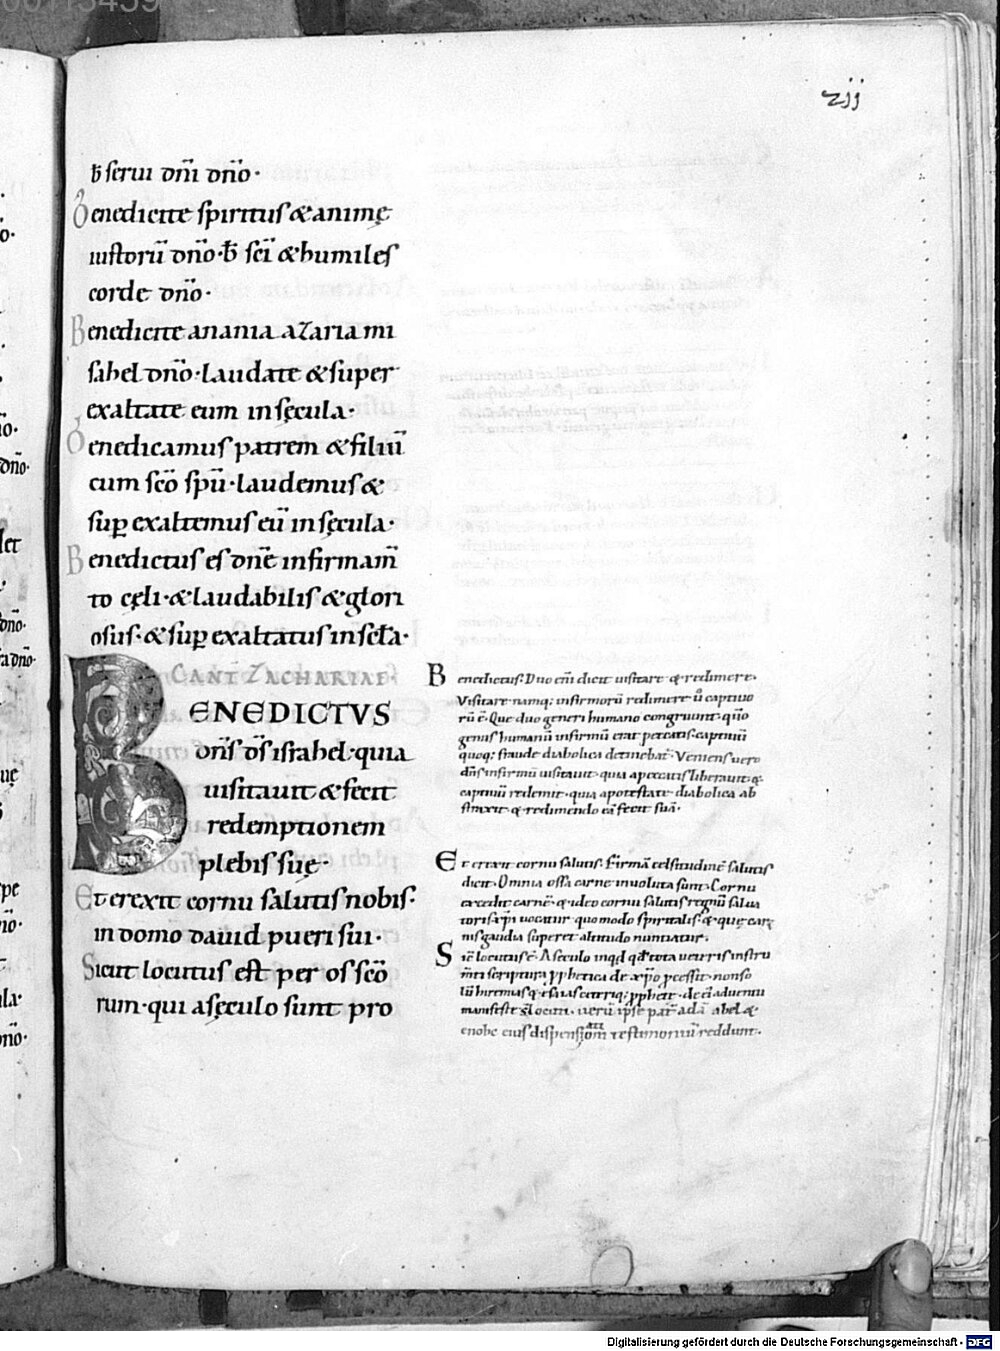 zjj
b̄ serui dn̄i dn̄o·
Benedicite spiritus & animę
iustorū dn̄o· b̄ sc̄i & humiles
corde dn̄o·
Benedicite anania azaria mi
sahel dn̄o· laudate & super
exaltate eum in sęcula·
Benedicamus patrem & filiū
cum sc̄o sp̄u· laudemus &
sup exaltemus eū in sęcula·
Benedictus es dn̄e in firmam̄
to cęli· & laudabilis & glori
osus· & sup exaltatus in scł̄a·
CANT̄ ZACHARIAE·
BENEDICTVS
dn̄s d̄s israhel· quia
uisitauit & fecit
redemptionem
plebis suę·
Et erexit cornu salutis nobis·
in domo dauid pueri sui·
Sicut locutus est per os sc̄o
rum· qui a sęculo sunt pro
Benedictus. Duo eni͂ dicit uisitare & redimere.
Visitare namq; infirmorū redimere ū captiuo
rū ē. Que duo generi humano congruunt· quō
genus humanū infirmū erat peccatis· captiuū
quoq; fraude diabolica detinebat̄. Veniens uero
dn̄s infirmū uisitauit· quia a peccatis liberauit· &
captiuū redemit· quia a potestate diabolica ab
straxit· & redimendo eā fecit suā·
Et erexit cornu salutis. Firmā celsitudinē salutis
dicit. Omnia ossa carne inuoluta sunt. Cornu
excedit carnē· & ideo cornu salutis regnū salua
toris xp̄i uocatur· quo modo spiritalis· & quę car
nis gaudia superet altitudo nuntiatur.
Sic̄ locutus ē. A seculo inqd qa tota ueteris instru
m̄ti scriptura pphetica de xp̄o pcessit· non so
lū hieremias q; esaias ceteriq; pphete· de ei͂ aduentu
manifeste locuti. uerū ipse pat̄ adā abel &
enohc eius dispensationi͂ testimoniū reddunt.
Digitalisierung gefördert durch die Deutsche Forschungsgemeinschaft - DFG